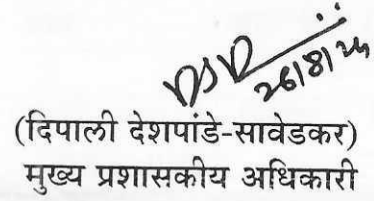 26/8/24
(दिपाली देशपांडे-सावेडकर)
मुख्य प्रशासकीय अधिकारी